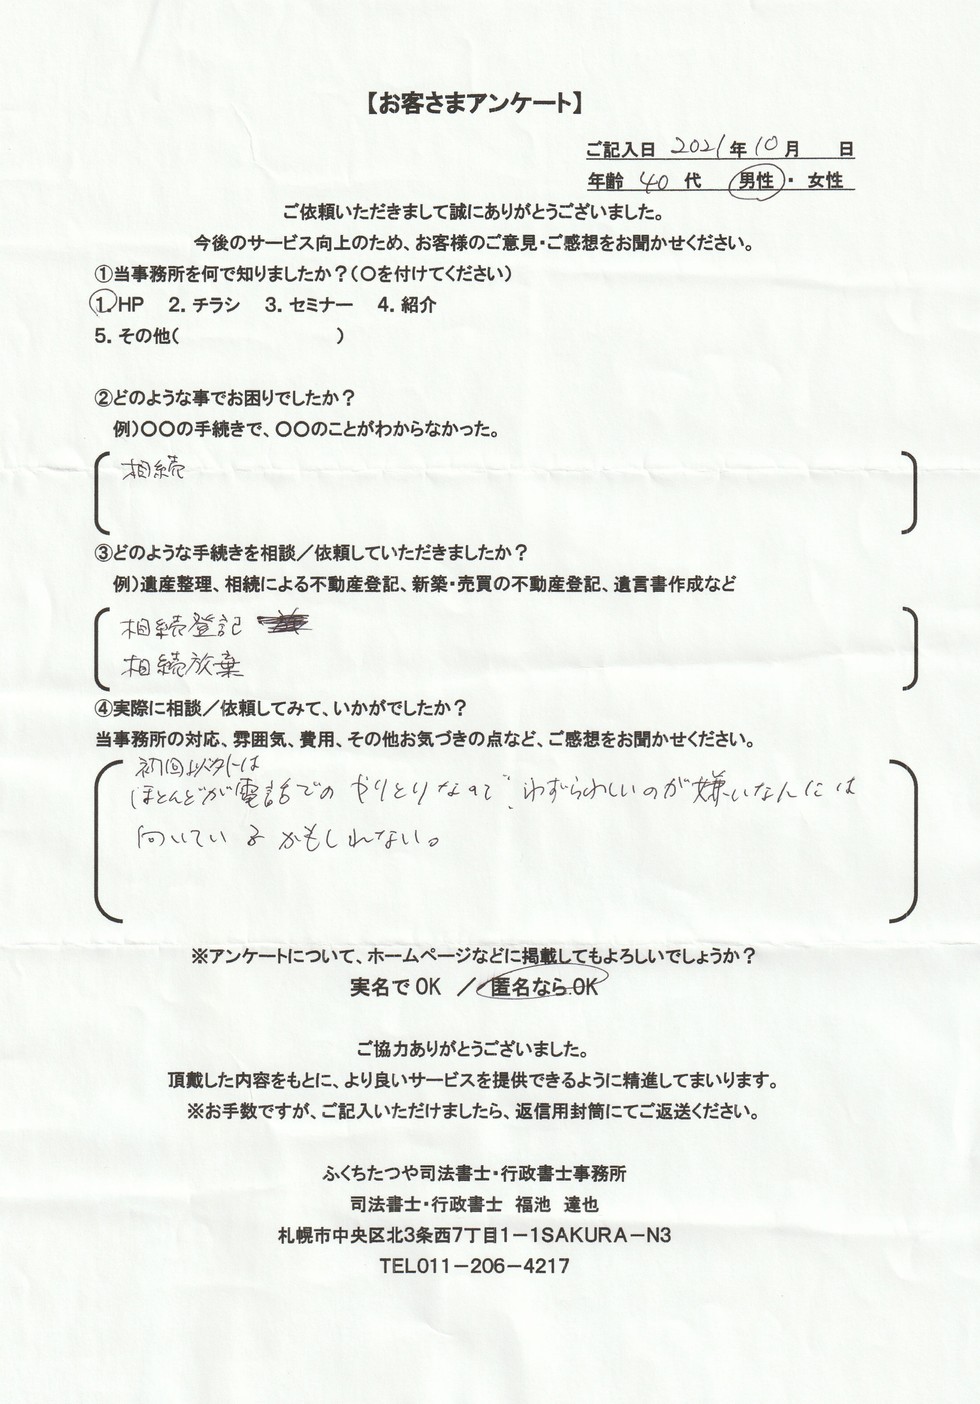 【お客さまアンケート】
ご記入日 2021年10月 日
年齢 40 代 男性・ 女性
ご依頼いただきまして誠にありがとうございました。
今後のサービス向上のため、お客様のご意見・ご感想をお聞かせください。
①当事務所を何で知りましたか？(〇を付けてください)
1. HP 2. チラシ 3. セミナー 4. 紹介
5. その他( )
②どのような事でお困りでしたか？
例)〇〇の手続きで、〇〇のことがわからなかった。
相続
③どのような手続きを相談／依頼していただきましたか？
例)遺産整理、相続による不動産登記、新築・売買の不動産登記、遺言書作成など
相続登記
相続放棄
④実際に相談／依頼してみて、いかがでしたか？
当事務所の対応、雰囲気、費用、その他お気づきの点など、ご感想をお聞かせください。
初回以外は
ほとんどが電話でのやりとりなので、わずらわしいのが嫌いなんには
向いているかもしれない。
※アンケートについて、ホームページなどに掲載してもよろしいでしょうか？
実名でOK ／ 匿名なら OK
ご協力ありがとうございました。
頂戴した内容をもとに、より良いサービスを提供できるように精進してまいります。
※お手数ですが、ご記入いただけましたら、返信用封筒にてご返送ください。
ふくちたつや司法書士・行政書士事務所
司法書士・行政書士 福池 達也
札幌市中央区北3条西7丁目1－1SAKURA－N3
TEL011－206－4217